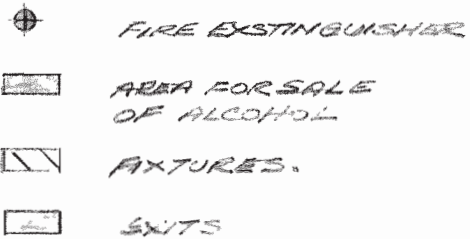 FIRE EXSTINGUISHER
AREA FOR SALE
OF ALCOHOL
FIXTURES.
EXITS